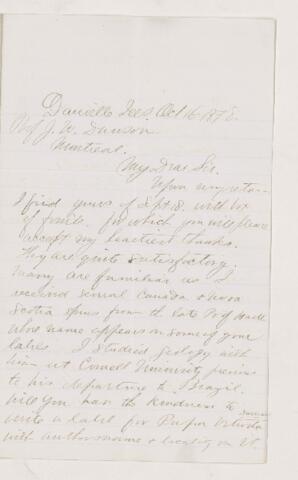 Danville Ills, Oct 16 187
Prof J. W. Dawson
Montreal.
My Dear Sir.
Upon my return
I find yours of Sept 18. with box
of fossils. for which you will please
accept my heartiest thanks.
They are quite satisfactory.
Many are familiar as I
received several Canada & Nova
Scotia spms from the late Prof Hartt
whose name appears on some of your
labels. I studied geology with
him at Cornell University previous
to his departure to Brazil.
Will you have the kindness to
write a label for Pupa Vetusta
with author name & locality on it.